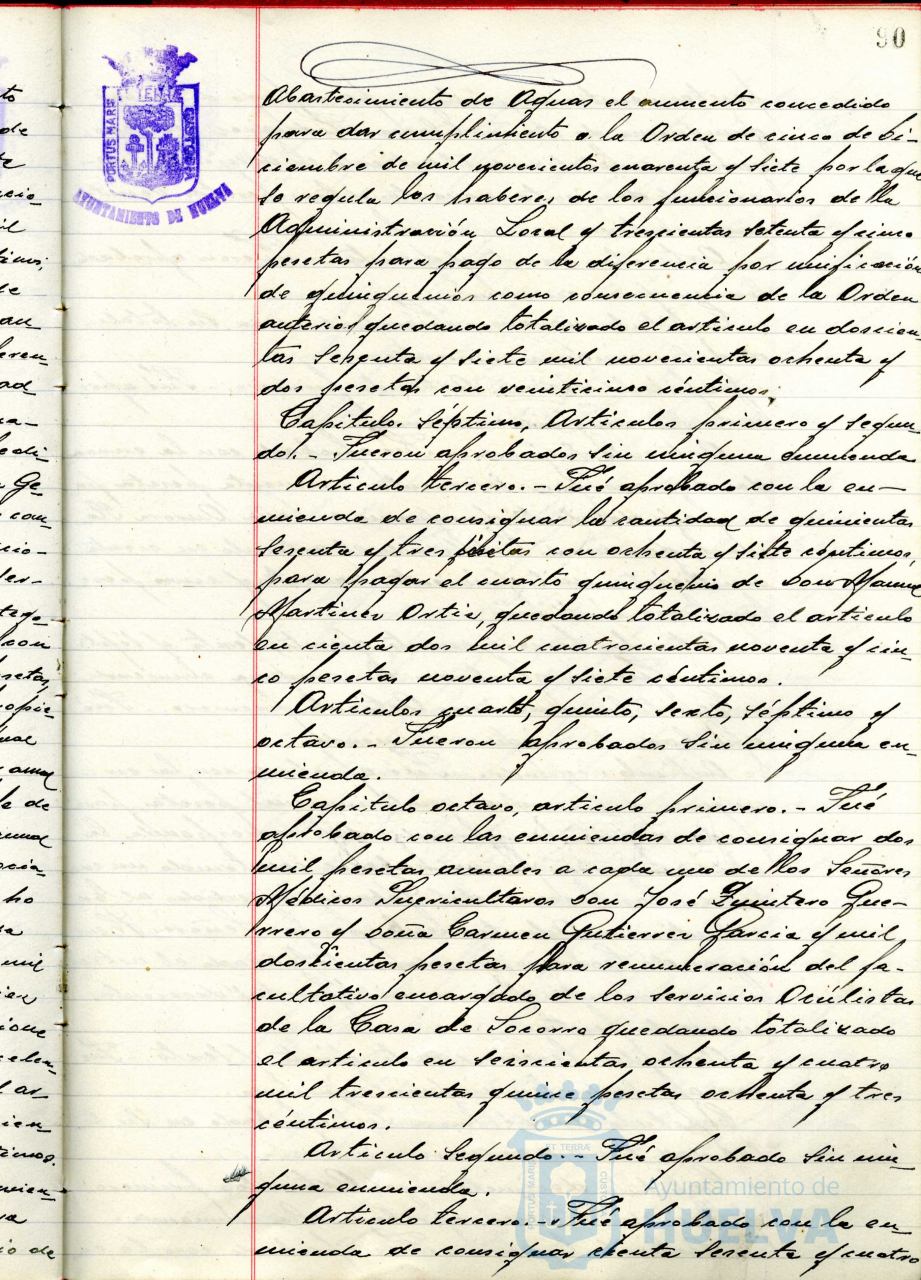 90
PORTUS MARIS ET TERRAE CUSTODIA
AYUNTAMIENTO DE HUELVA
Abastecimiento de Aguas el aumento concedido
para dar cumplimiento a la Orden de cinco de Di-
ciembre de mil novecientos cuarenta y siete por la que
se regula los haberes de los funcionarios de la
Administración Local y trescientas setenta y cinco
pesetas para pago de la diferencia por unificación
de quinquenios como consecuencia de la Orden
anterior quedando totalizado el articulo en doscien-
tas sesenta y siete mil novecientas ochenta y
dos pesetas con veinticinco céntimos.
Capitulo. Séptimo, Articulos primero y segun-
do.- Fueron aprobados sin ninguna enmienda
Articulo tercero.- Fué aprobado con la en-
mienda de consignar la cantidad de quinientas
sesenta y tres pesetas con ochenta y siete céntimos
para pagar el cuarto quinquenio de Don Manuel
Martinez Ortiz, quedando totalizado el articulo
en cienta dos mil cuatrocientas noventa y cin-
co pesetas noventa y siete céntimos.
Articulos cuarto, quinto, sexto, séptimo y
octavo.- Fueron aprobados sin ninguna en-
mienda.
Capitulo octavo, articulo primero.- Fué
aprobado con las enmiendas de consignar dos
mil pesetas anuales a cada uno de los Señores
Médicos Puericultores Don José Quintero Gue-
rrero y Doña Carmen Gutierrez Garcia y mil
doscientas pesetas para remuneración del fa-
cultativo encargado de los servicios Oculistas
de la Casa de Socorro quedando totalizado
el articulo en seiscientas ochenta y cuatro
mil trescientas quince pesetas ochenta y tres
céntimos.
Articulo segundo.- Fué aprobado sin nin-
guna enmienda.
Articulo tercero.- Fué aprobado con la en-
mienda de consignar cienta sesenta y cuatro
Ayuntamiento de
HUELVA